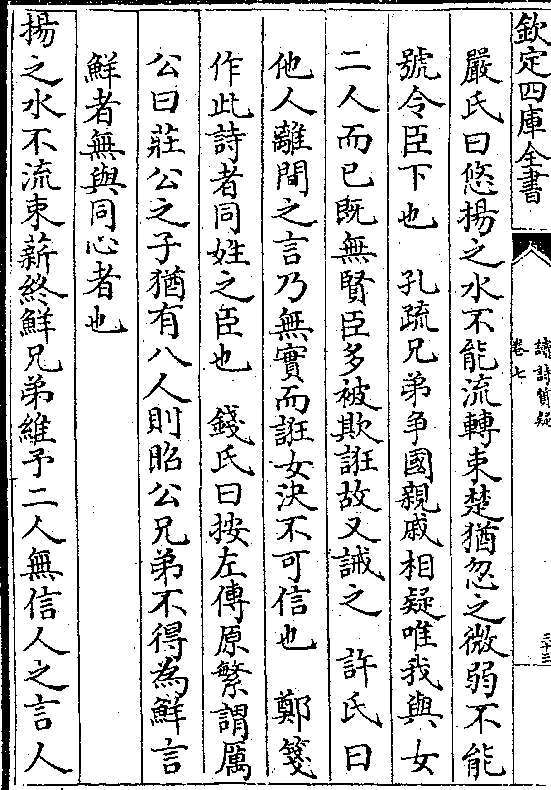 欽定四庫全書
讀詩質疑
卷七
三十三
嚴氏曰悠揚之水不能流轉束楚猶忽之微弱不能
號令臣下也　孔疏兄弟爭國親戚相疑唯我與女
二人而已既無賢臣多被欺誑故又誡之　許氏曰
他人離間之言乃無實而誑女決不可信也　鄭箋
作此詩者同姓之臣也　錢氏曰按左傳原繁謂厲
公曰莊公之子猶有八人則昭公兄弟不得為鮮言
鮮者無與同心者也
揚之水不流束薪終鮮兄弟維予二人無信人之言人